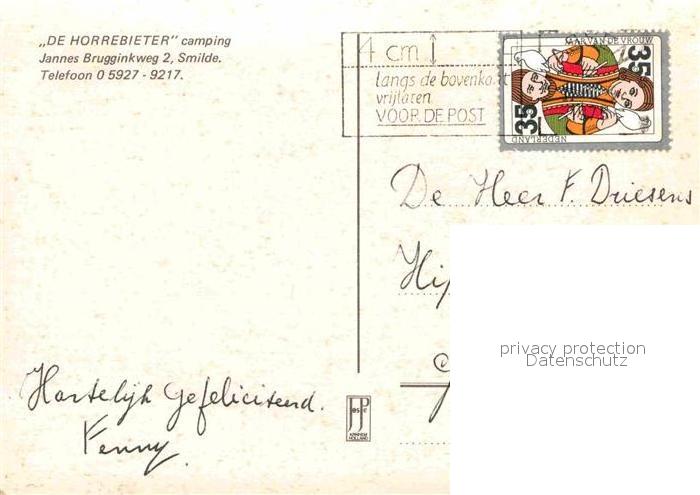 „DE HORREBIETER” camping
Jannes Brugginkweg 2, Smilde.
Telefoon 0 5927 - 9217.
4 cm
langs de bovenkant
vrijlaten
VOOR DE POST
JAAR VAN DE VROUW
35
35
NEDERLAND
De Heer F. Driesens
privacy protection
Datenschutz
Hartelijk gefeliciteerd.
Fenny.
ARNHEM
HOLLAND